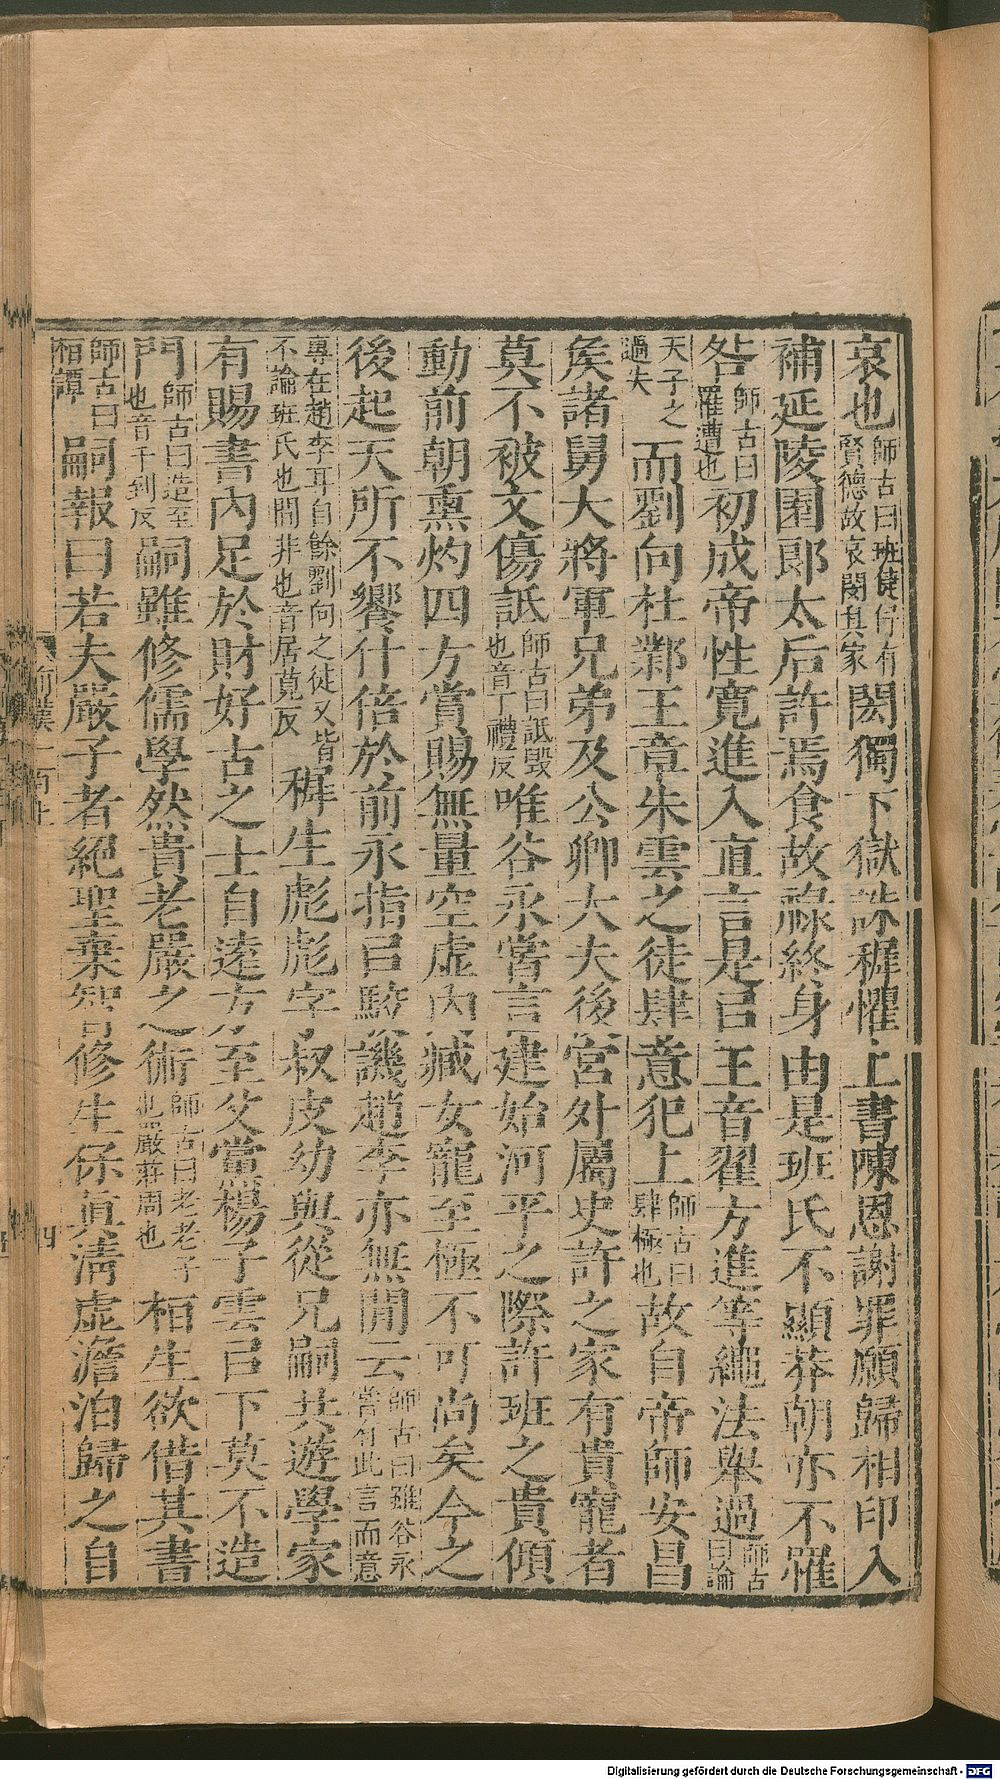 哀也師古曰班倢伃有賢德故哀閔其家閎獨下獄誅穉懼上書陳恩謝罪願歸相印入
補延陵園郎太后許焉食故祿終身由是班氏不顯莽朝亦不罹
咎師古曰罹遭也初成帝性寬進入直言是㠯王音翟方進等繩法舉過師古曰論
天子之過失而劉向杜鄴王章朱雲之徒肆意犯上師古曰肆極也故自帝師安昌
矦諸舅大將軍兄弟及公卿大夫後宮外屬史許之家有貴寵者
莫不被文傷詆師古曰詆毀也音丁禮反唯谷永嘗言建始河平之際許班之貴傾
動前朝熏灼四方賞賜無量空虛內臧女寵至極不可尚矣今之
後起天所不饗什倍於前永指㠯駮譏趙李亦無閒云師古曰雖谷永嘗有此言而意
專在趙李耳自餘劉向之徒又皆不論班氏也閒非也音居莧反穉生彪彪字叔皮幼與從兄嗣共遊學家
有賜書內足於財好古之士自遠方至父黨楊子雲㠯下莫不造
門師古曰造至也音千到反嗣雖修儒學然貴老嚴之術師古曰老老子也嚴莊周也桓生欲借其書
師古曰桓譚嗣報曰若夫嚴子者絕聖棄智修生保真清虛澹泊歸之自
前漢一百上
四
Digitalisierung gefördert durch die Deutsche Forschungsgemeinschaft - DFG